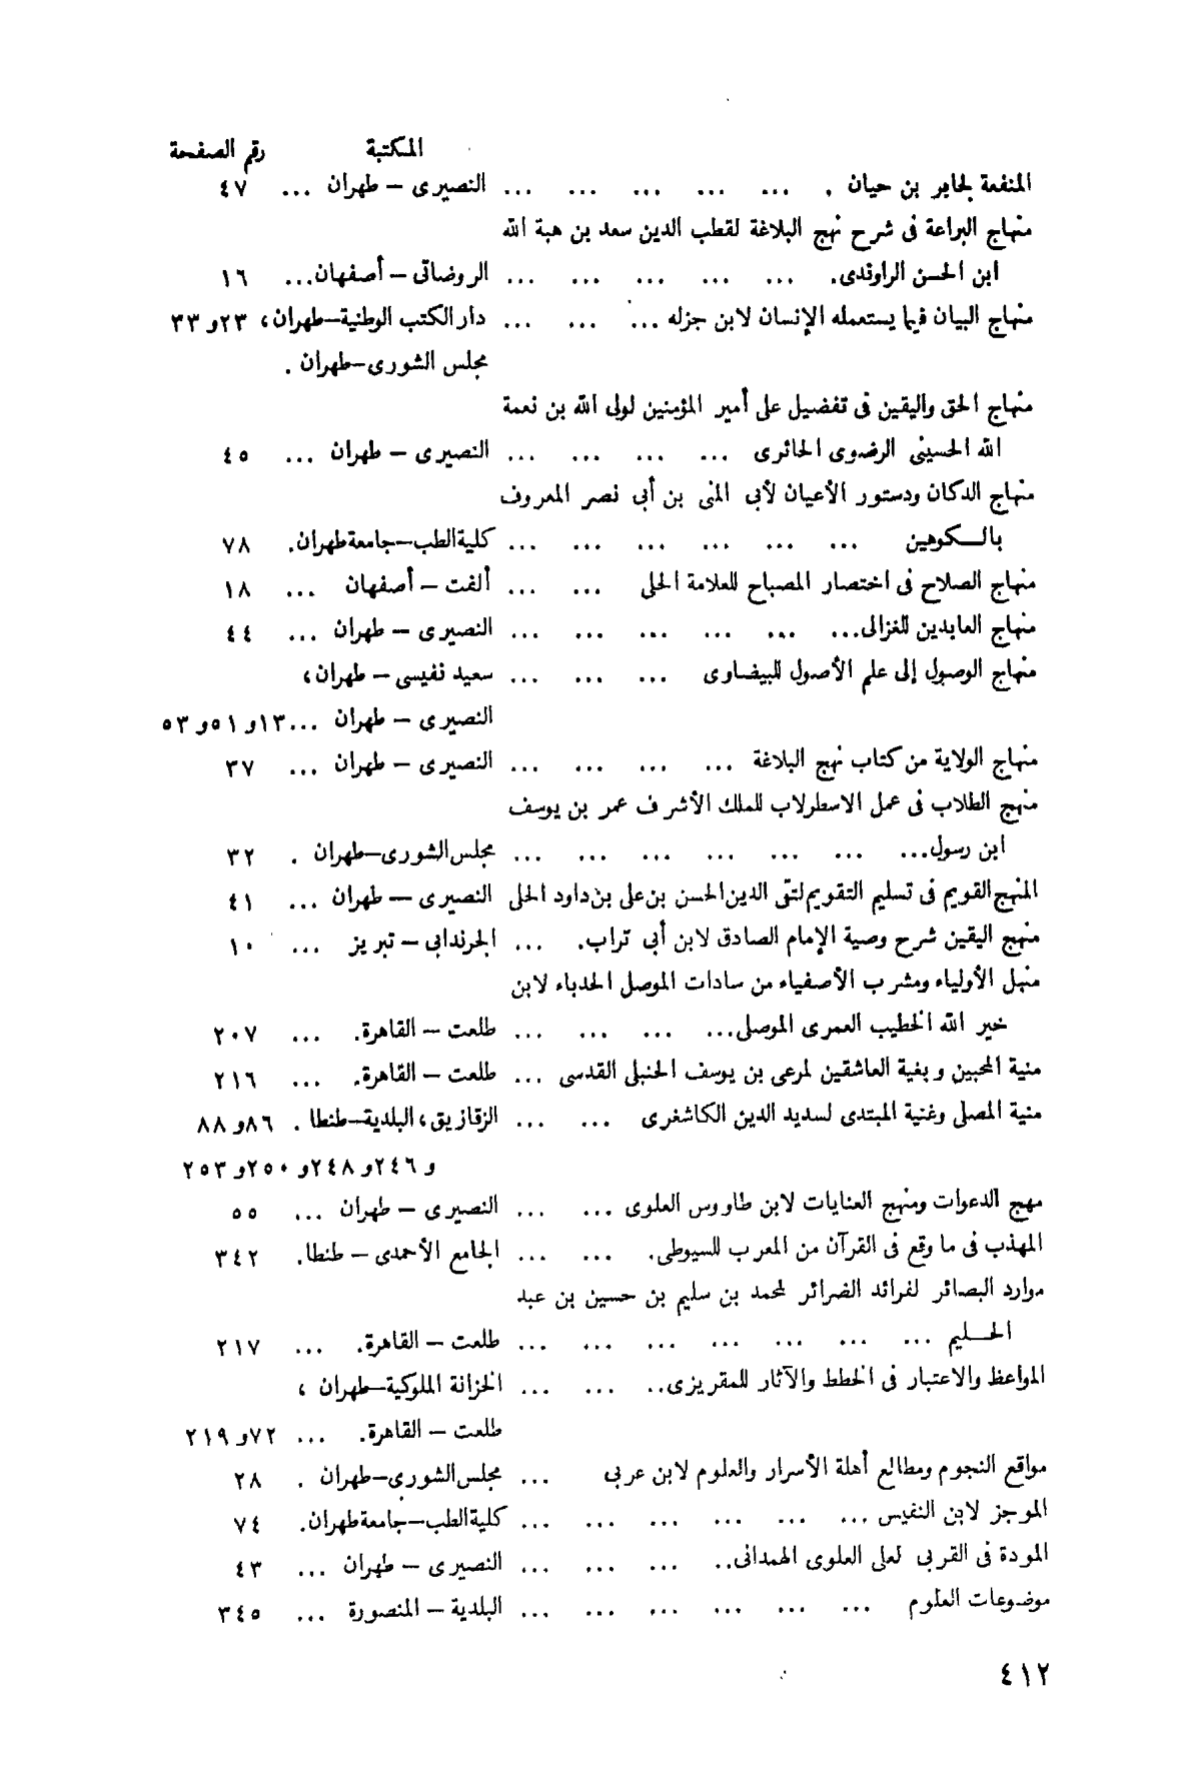 المكتبة رقم الصفحة
المنفعة لجابر بن حيان . ... ... ... ... ... النصيرى – طهران ... ٤٧
منهاج البراعة فى شرح نهج البلاغة لقطب الدين سعد بن هبة الله
ابن الحسن الراوندى. ... ... ... ... ... الروضاتى – أصفهان... ١٦
منهاج البيان فيما يستعمله الإنسان لابن جزله ... ... ... دار الكتب الوطنية–طهران، ٢٣و ٣٣
مجلس الشورى–طهران .
منهاج الحق واليقين فى تفضيل على أمير المؤمنين لولى الله بن نعمة
الله الحسينى الرضوى الحائرى ... ... ... ... النصيرى – طهران ... ٤٥
منهاج الدكان ودستور الأعيان لأبى المنى بن أبى نصر المعروف
بالكوهين ... ... ... ... ... ... كلية الطب–جامعة طهران. ٧٨
منهاج الصلاح فى اختصار المصباح للعلامة الحلى ... ... ألفت – أصفهان ... ١٨
منهاج العابدين للغزالى... ... ... ... ... ... النصيرى – طهران ... ٤٤
منهاج الوصول إلى علم الأصول للبيضاوى ... ... ... سعيد نفيسى – طهران،
النصيرى – طهران ...١٣و ٥١و ٥٣
منهاج الولاية من كتاب نهج البلاغة ... ... ... ... النصيرى – طهران ... ٣٧
منهج الطلاب فى عمل الاسطرلاب للملك الأشرف عمر بن يوسف
ابن رسول... ... ... ... ... ... ... مجلس الشورى–طهران . ٣٢
المنهج القويم فى تسليم التقويم لتقى الدين الحسن بن على بن داود الحلى النصيرى – طهران ... ٤١
منهج اليقين شرح وصية الإمام الصادق لابن أبى تراب. ... الجرندابى – تبريز ... ١٠
منهل الأولياء ومشرب الأصفياء من سادات الموصل الحدباء لابن
خير الله الخطيب العمرى الموصلى... ... ... ... طلعت – القاهرة. ... ٢٠٧
منية المحبين وبغية العاشقين لمرعى بن يوسف الحنبلى القدسى ... طلعت – القاهرة. ... ٢١٦
منية المصلى وغنية المبتدى لسديد الدين الكاشغرى ... ... الزقازيق، البلدية–طنطا . ٨٦و ٨٨
و ٢٤٦و ٢٤٨و ٢٥٠و ٢٥٣
مهج الدعوات ومنهج العنايات لابن طاووس العلوى ... ... النصيرى – طهران ... ٥٥
المهذب فى ما وقع فى القرآن من المعرب للسيوطى. ... ... الجامع الأحمدى – طنطا. ٣٤٢
موارد البصائر لفرائد الضرائر لمحمد بن سليم بن حسين بن عبد
الحليم ... ... ... ... ... ... ... طلعت – القاهرة. ... ٢١٧
المواعظ والاعتبار فى الخطط والآثار للمقريزى.. ... ... الخزانة الملوكية–طهران ،
طلعت – القاهرة. ... ٧٢و ٢١٩
مواقع النجوم ومطالع أهلة الأسرار والعلوم لابن عربى ... مجلس الشورى–طهران . ٢٨
الموجز لابن النفيس ... ... ... ... ... ... كلية الطب–جامعة طهران. ٧٤
المودة فى القربى لعلى العلوى الهمدانى.. ... ... ... النصيرى – طهران ... ٤٣
موضوعات العلوم ... ... ... ... ... ... البلدية – المنصورة ... ٣٤٥
٤١٢